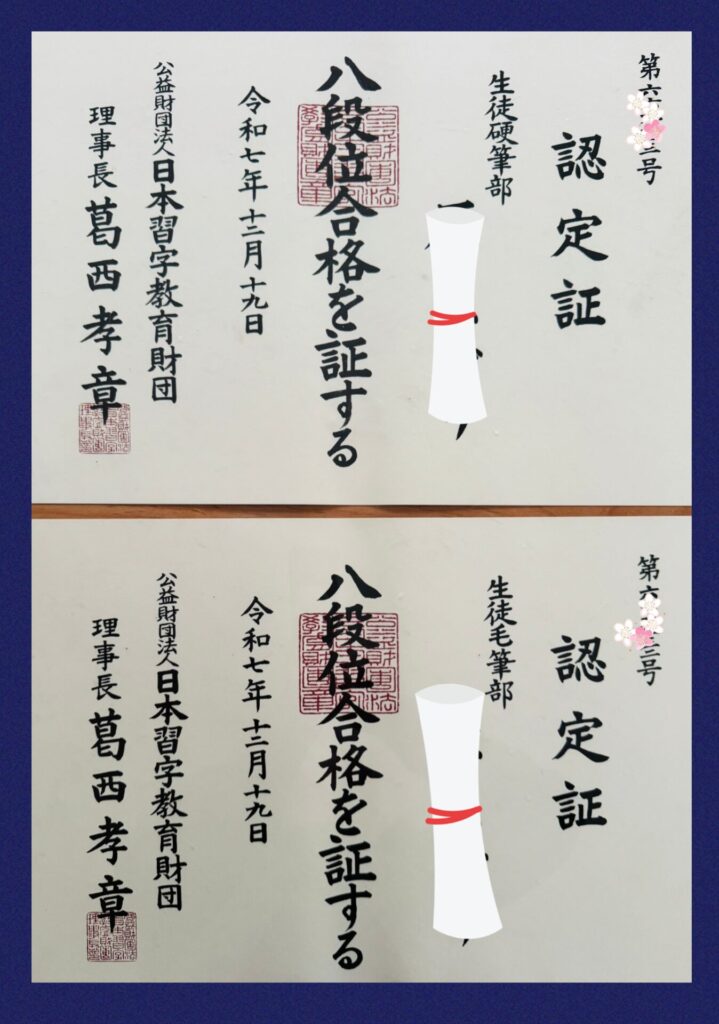 第六 三号
認定証
生徒硬筆部
八段位合格を証する
令和七年十二月十九日
公益財団法人日本習字教育財団
理事長 葛西孝章
第六 三号
認定証
生徒毛筆部
八段位合格を証する
令和七年十二月十九日
公益財団法人日本習字教育財団
理事長 葛西孝章